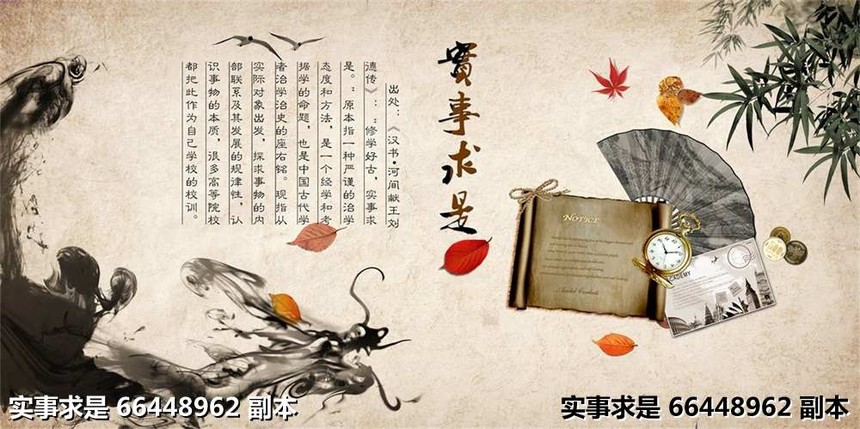 實事求是
出处：《汉书·河间献王刘
德传》：“修学好古，实事求
是。：原本指一种严谨的治学
态度和方法，是一个经学和考
据学的命题，也是中国古代学
者治学治史的座右铭。现指从
实际对象出发，探求事物的内
部联系及其发展的规律性，认
识事物的本质，很多高等院校
都把此作为自己学校的校训。
NOTICE
ACADEMY
实事求是 66448962 副本
实事求是 66448962 副本